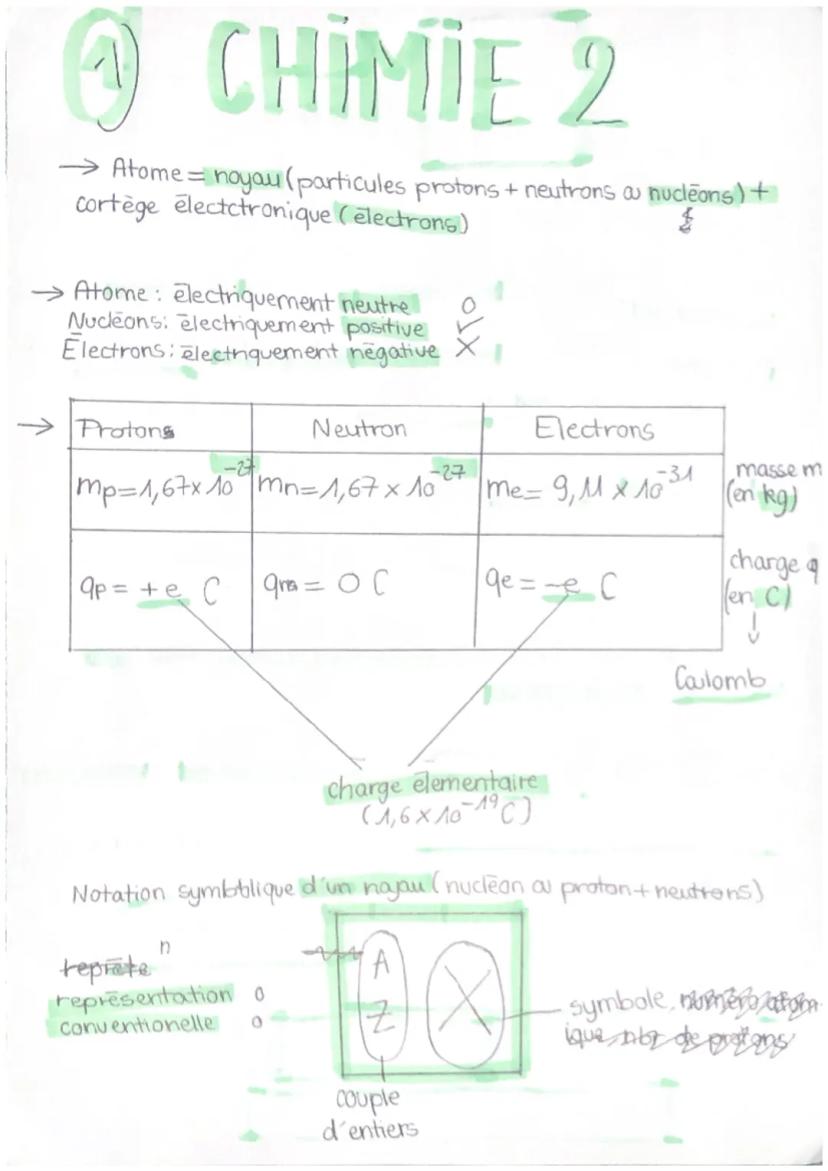 ① CHIMIE 2
→ Atome = noyau (particules protons + neutrons ou nucléons) +
cortège électctronique (électrons)
→ Atome : électriquement neutre o
Nucléons : électriquement positive ✓
Électrons : électriquement négative ×
→ Protons Neutron Electrons
mp=1,67×10⁻²⁷ mn=1,67×10⁻²⁷ me= 9,11×10⁻³¹ masse m
(en kg)
qp = +e C qn = 0 C qe = -e C charge q
(en C)
↓
Coulomb
charge élementaire
(1,6×10⁻¹⁹C)
Notation symbolique d'un noyau (nucléon ou proton + neutrons)
n
représentation
conventionelle
A
Z
X
symbole, numéro atom
ique, nbr de protons
couple
d'entiers